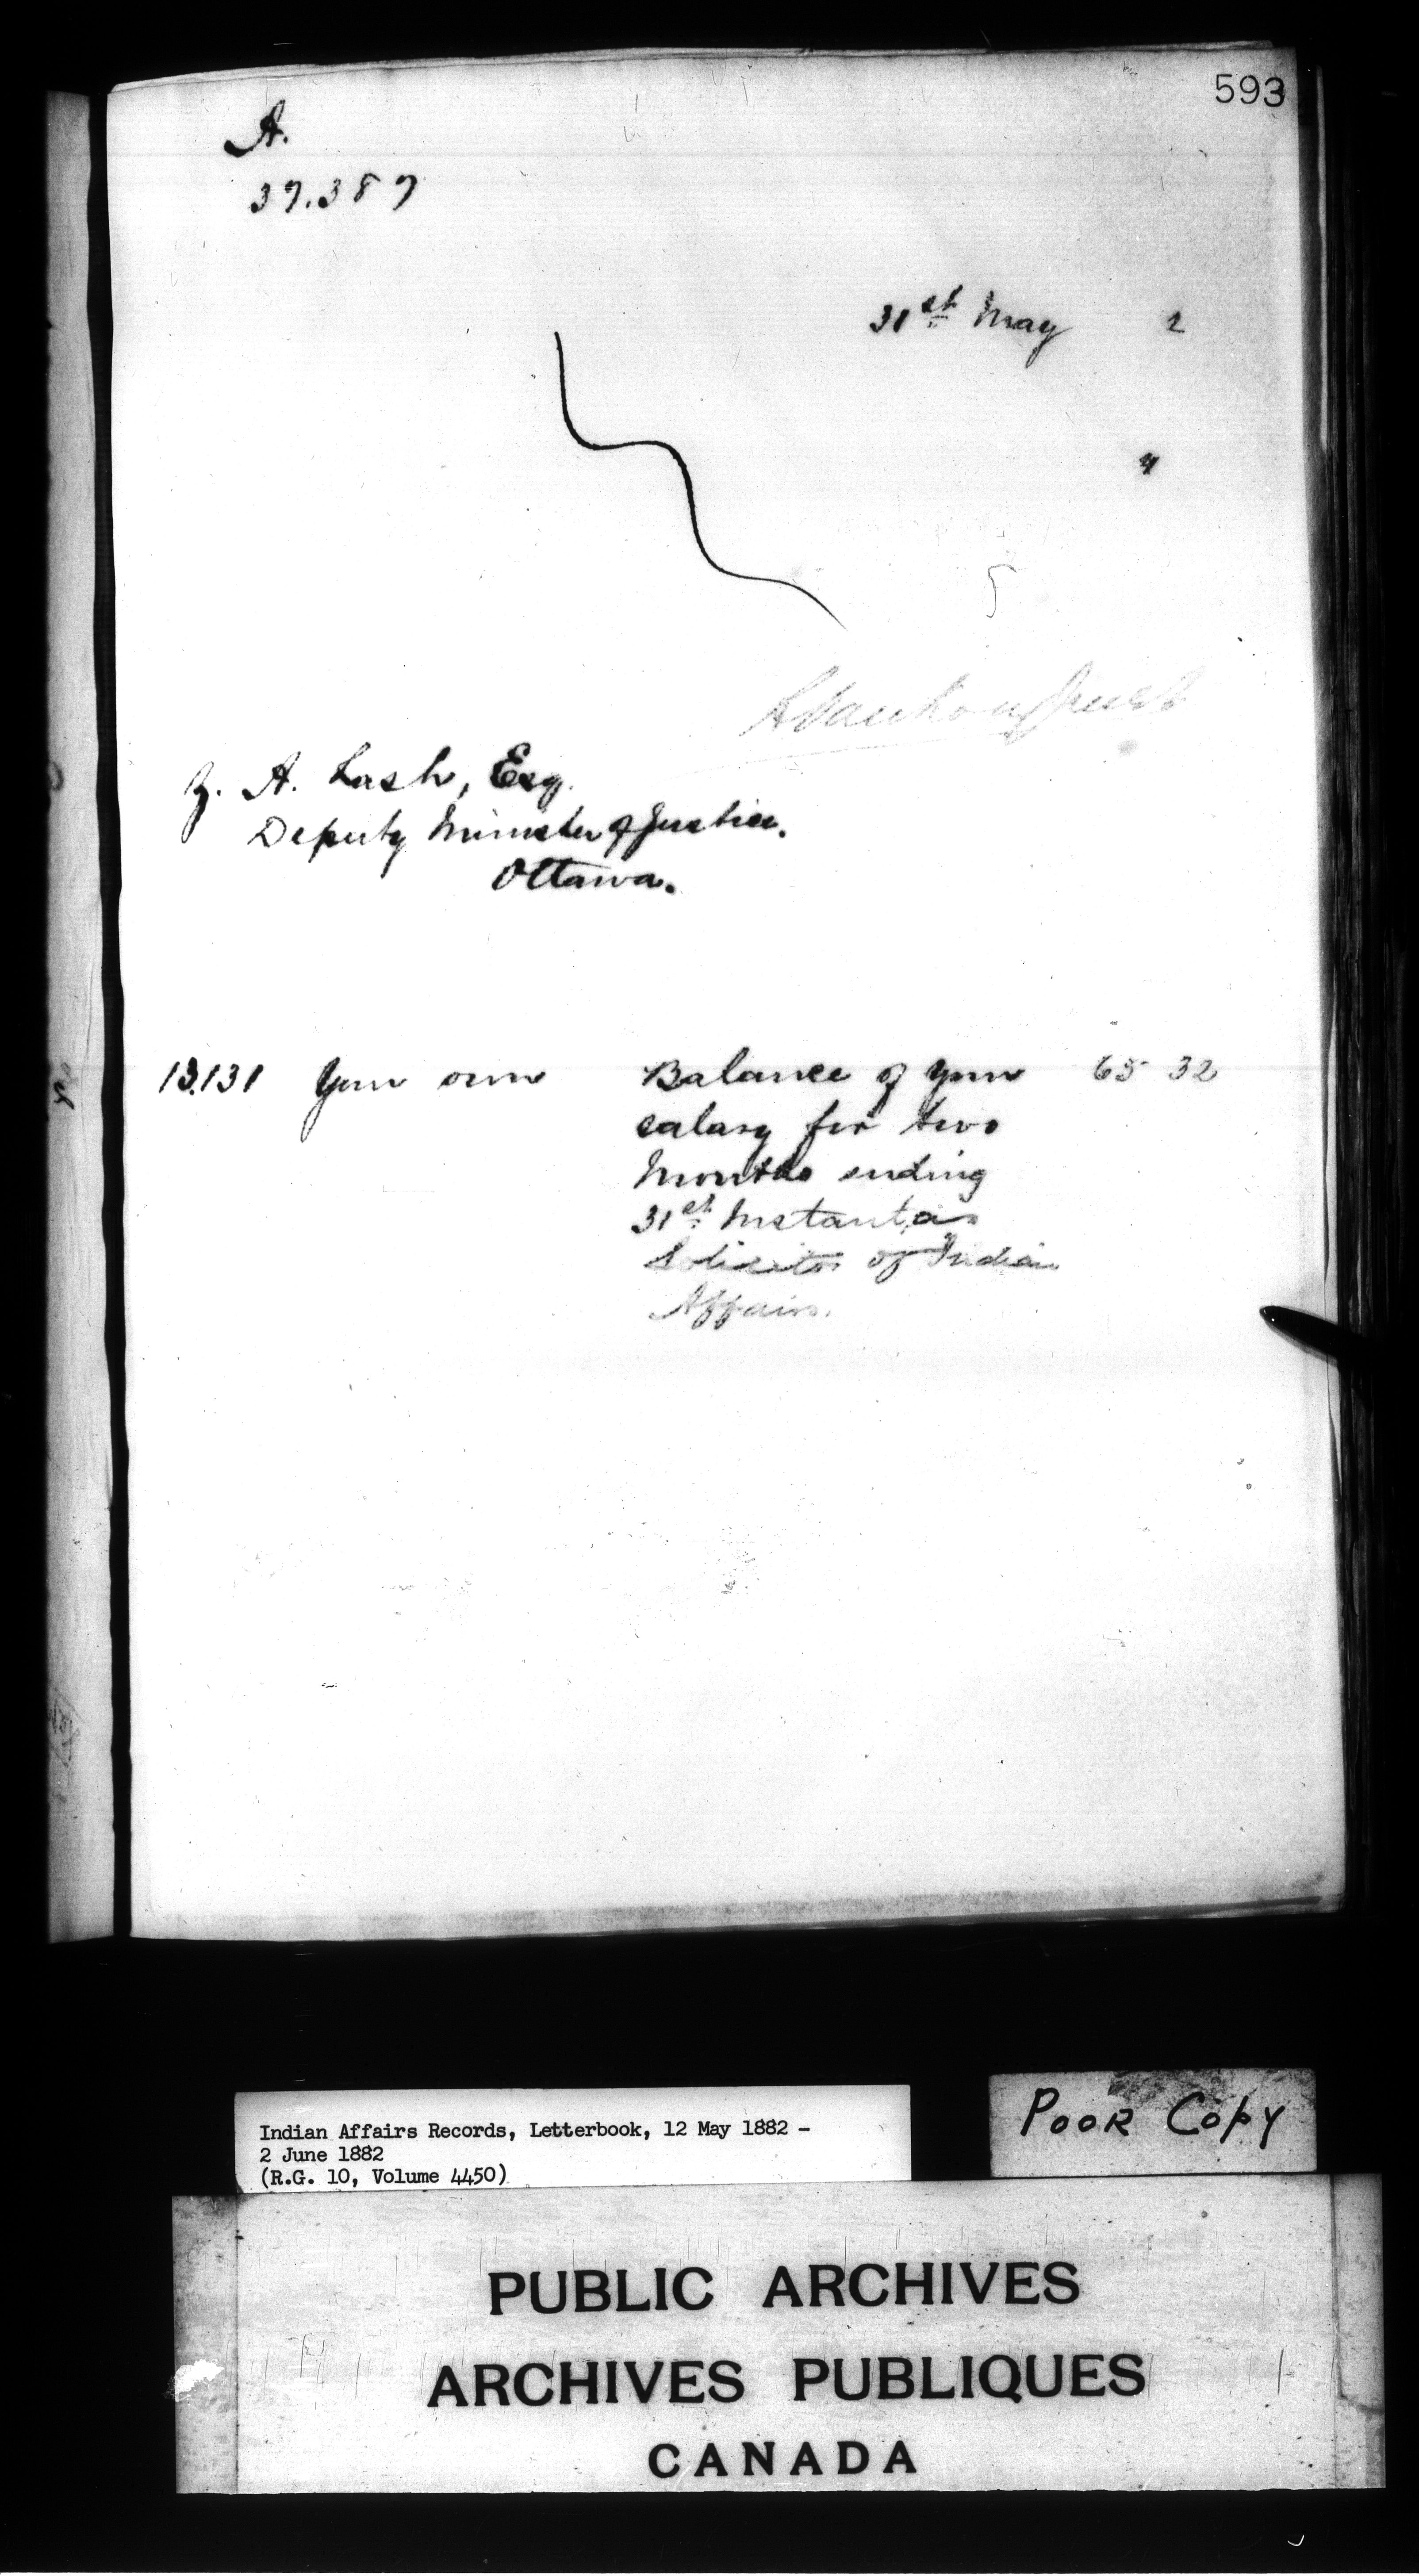 593
A.
37.387
31st May 2
4
Z. A. Lash, Esq.
Deputy Minister of Justice.
Ottawa.
13.131 Your own Balance of your 65 32
salary for two
Months ending
31st Instant, as
Solicitor of Indian
Affairs.
Indian Affairs Records, Letterbook, 12 May 1882 -
2 June 1882
(R.G. 10, Volume 4450)
POOR COPY
PUBLIC ARCHIVES
ARCHIVES PUBLIQUES
CANADA